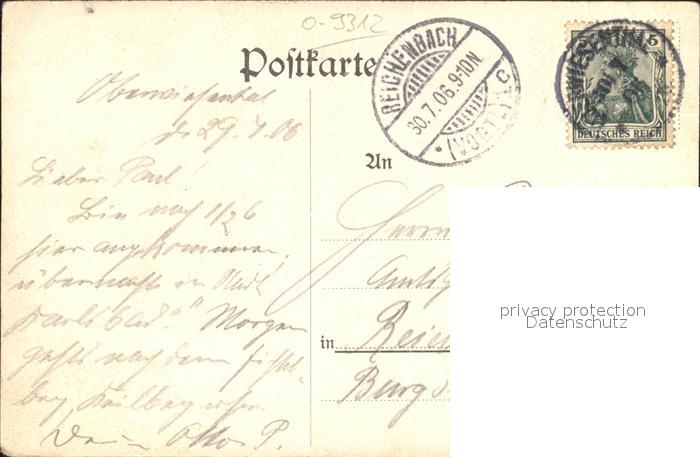 0-9312
Postkarte
REICHENBACH
30.7.06.9-10N.
* (VOGTL.) 1 c
WIESENTHAL
5
DEUTSCHES REICH
Oberwiesenthal
d. 29.7.06
Lieber Paul!
Bin nach 1/2 6
hier angekommen,
übernachte in Stadt
Karlsbad." Morgen
gehts nach dem Fichtel-
berg, Keilberg usw.
Dein Otto P.
An
Herrn
Amtsg
in Reic
Burgs
privacy protection
Datenschutz